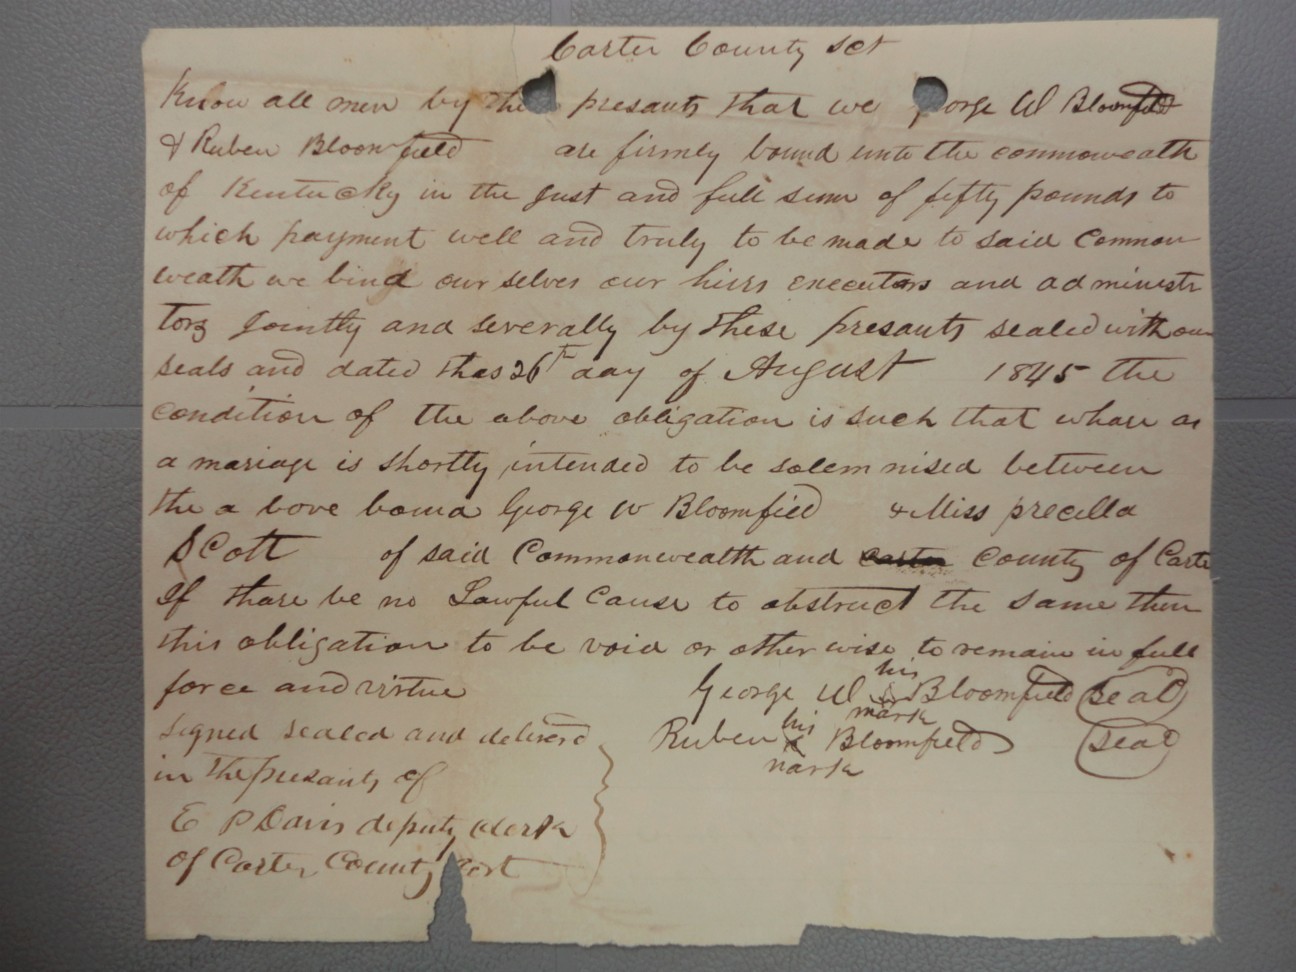 Carter County sct
Know all men by the presants that we George W Bloomfield
& Ruben Bloomfield are firmly bound unto the commonweath
of Kentucky in the Just and full sum of fifty pounds to
which payment well and truly to be made to said Common
weath we bind our selves our hirs executors and administr
tors Jointly and severally by these presants sealed with our
seals and dated thas 26th day of August 1845 the
condition of the above obligation is such that whare as
a mariage is shortly intended to be solemnised between
the a bove bound George W Bloomfield & Miss precella
Scott of said Commonwealth and carter county of Carte
If thare be no Lawful Cause to obstruct the same then
this obligation to be void or other wise to remain in full
force and virtue
George W his Bloomfield seal
mark
Ruben his x Bloomfield seal
mark
signed sealed and deliverd
in the presants of
E P Davis deputy clerk
of Carter County Cort